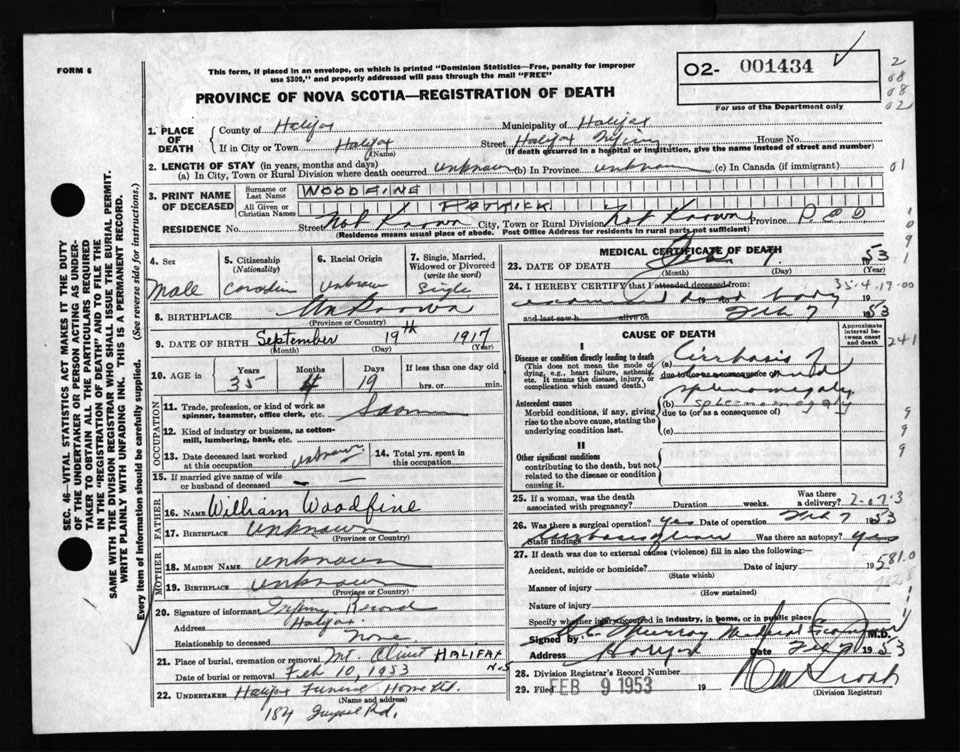 FORM 6
This form, if placed in an envelope, on which is printed "Dominion Statistics—Free, penalty for improper
use $300," and properly addressed will pass through the mail "FREE"
O2- 001434
For use of the Department only
PROVINCE OF NOVA SCOTIA—REGISTRATION OF DEATH
1. PLACE OF DEATH
County of Halifax Municipality of Halifax
If in City or Town Halifax (Name) Street Halifax House No.
(If death occurred in a hospital or institution, give the name instead of street and number)
2. LENGTH OF STAY (in years, months and days)
(a) In City, Town or Rural Division where death occurred unknown (b) In Province unknown (c) In Canada (if immigrant)
3. PRINT NAME OF DECEASED
Surname or Last Name WOODFINE
All Given or Christian Names PATRICK
RESIDENCE No. Street Not Known City, Town or Rural Division Not Known Province
(Residence means usual place of abode. Post Office Address for residents in rural parts not sufficient)
4. Sex Male
5. Citizenship (Nationality)
6. Racial Origin Unknown
7. Single, Married, Widowed or Divorced (write the word) Single
8. BIRTHPLACE Unknown
(Province or Country)
9. DATE OF BIRTH September 19th 1917
(Month) (Day) (Year)
10. AGE in Years Months Days If less than one day old
35 4 19 hrs. or min.
OCCUPATION
11. Trade, profession, or kind of work as spinner, teamster, office clerk, etc.
12. Kind of industry or business, as cotton-mill, lumbering, bank, etc.
13. Date deceased last worked at this occupation unknown
14. Total yrs. spent in this occupation
15. If married give name of wife or husband of deceased — —
FATHER
16. NAME William Woodfine
17. BIRTHPLACE Unknown
(Province or Country)
MOTHER
18. MAIDEN NAME unknown
19. BIRTHPLACE unknown
(Province or Country)
20. Signature of informant Record
Address Halifax
Relationship to deceased None
21. Place of burial, cremation or removal Mt. Olivet HALIFAX N.S
Date of burial or removal Feb 10, 1953
22. UNDERTAKER Halifax Funeral Home Ltd.
(Name and address)
184 Rd.
MEDICAL CERTIFICATE OF DEATH
23. DATE OF DEATH Feb. 7. 1953
(Month) (Day) (Year)
24. I HEREBY CERTIFY that I attended deceased from: 35-4-19-00
examined dead body 19
and last saw h alive on Feb 7 1953
CAUSE OF DEATH
Approximate interval between onset and death
I
Disease or condition directly leading to death
(This does not mean the mode of dying, e.g., heart failure, asthenia, etc. It means the disease, injury, or complication which caused death.)
(a) Cirrhosis of
due to (or as a consequence of)
Antecedent causes
Morbid conditions, if any, giving rise to the above cause, stating the underlying condition last.
(b) splenomegaly
due to (or as a consequence of)
(c)
II
Other significant conditions
contributing to the death, but not related to the disease or condition causing it.
25. If a woman, was the death associated with pregnancy? Duration weeks. Was there a delivery?
26. Was there a surgical operation? yes Date of operation Feb 7 1953
State findings Was there an autopsy? yes
27. If death was due to external causes (violence) fill in also the following:—
Accident, suicide or homicide? Date of injury 19 581.0
(State which)
Manner of injury
(How sustained)
Nature of injury
Specify whether injury occurred in industry, in home, or in public place
Signed by Murray Medical M.D.
Address Halifax Date Feb 9 1953
28. Division Registrar's Record Number
29. Filed FEB 9 1953 19
(Division Registrar)
SEC. 46—VITAL STATISTICS ACT MAKES IT THE DUTY
OF THE UNDERTAKER OR PERSON ACTING AS UNDER-
TAKER TO OBTAIN ALL THE PARTICULARS REQUIRED
IN THE "REGISTRATION OF DEATH" AND TO FILE THE
SAME WITH THE DIVISION REGISTRAR WHO SHALL ISSUE THE BURIAL PERMIT.
WRITE PLAINLY WITH UNFADING INK. THIS IS A PERMANENT RECORD.
Every item of information should be carefully supplied. (See reverse side for instructions.)
2
08
08
02
01
241